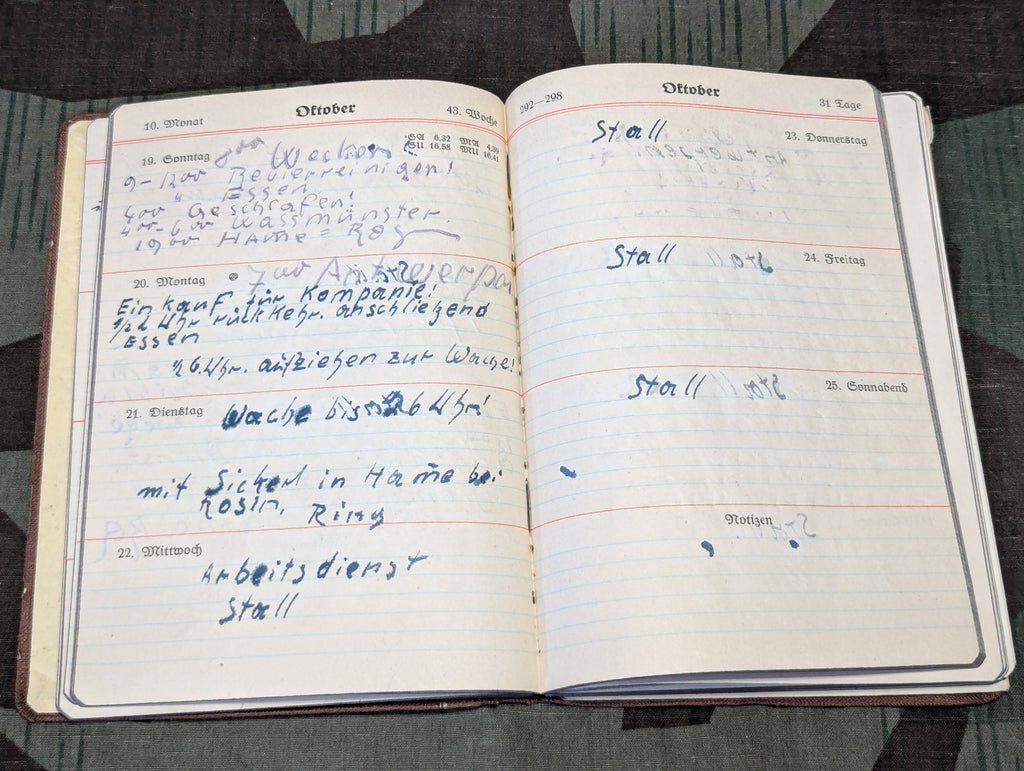 10. Monat
Oktober
43. Woche
19. Sonntag
SA 6.32 MA 4.39
SU 16.58 MU 16.41
700 Wecken
9-1200 Revierreinigen!
" Essen.
400 Geschlafen!
400-600 Wassmünster.
1900 Hame =
20. Montag
700
Einkauf für Kompanie!
1/2 2 Uhr rückkehr. anschließend
Essen
1/2 6 Uhr. aufziehen zur Wache!
21. Dienstag
Wache bis 1/2 6 Uhr!
mit Sickerl in Hame bei
Rosin. Ring
22. Mittwoch
Arbeitsdienst
Stall
292—298
Oktober
31 Tage
23. Donnerstag
Stall
24. Freitag
Stall
25. Sonnabend
Stall
Notizen